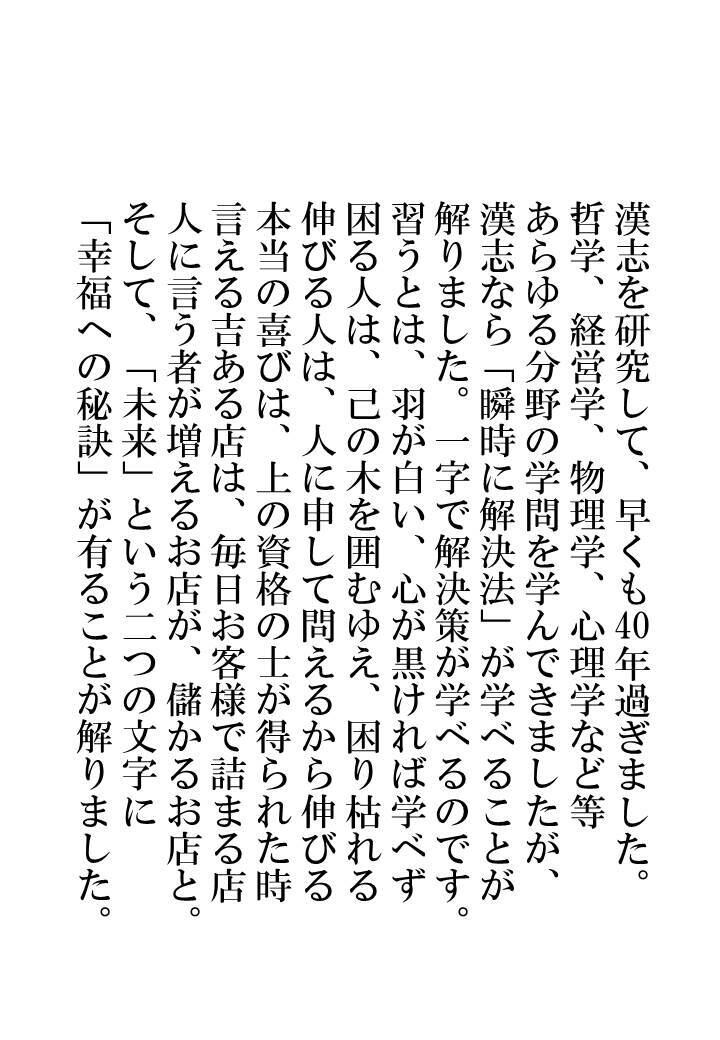 漢志を研究して、早くも40年過ぎました。
哲学、経営学、物理学、心理学など等
あらゆる分野の学問を学んできましたが、
漢志なら「瞬時に解決法」が学べることが
解りました。一字で解決策が学べるのです。
習うとは、羽が白い、心が黒ければ学べず
困る人は、己の木を囲むゆえ、困り枯れる
伸びる人は、人に申して問えるから伸びる
本当の喜びは、上の資格の士が得られた時
言える吉ある店は、毎日お客様で詰まる店
人に言う者が増えるお店が、儲かるお店と。
そして、「未来」という二つの文字に
「幸福への秘訣」が有ることが解りました。